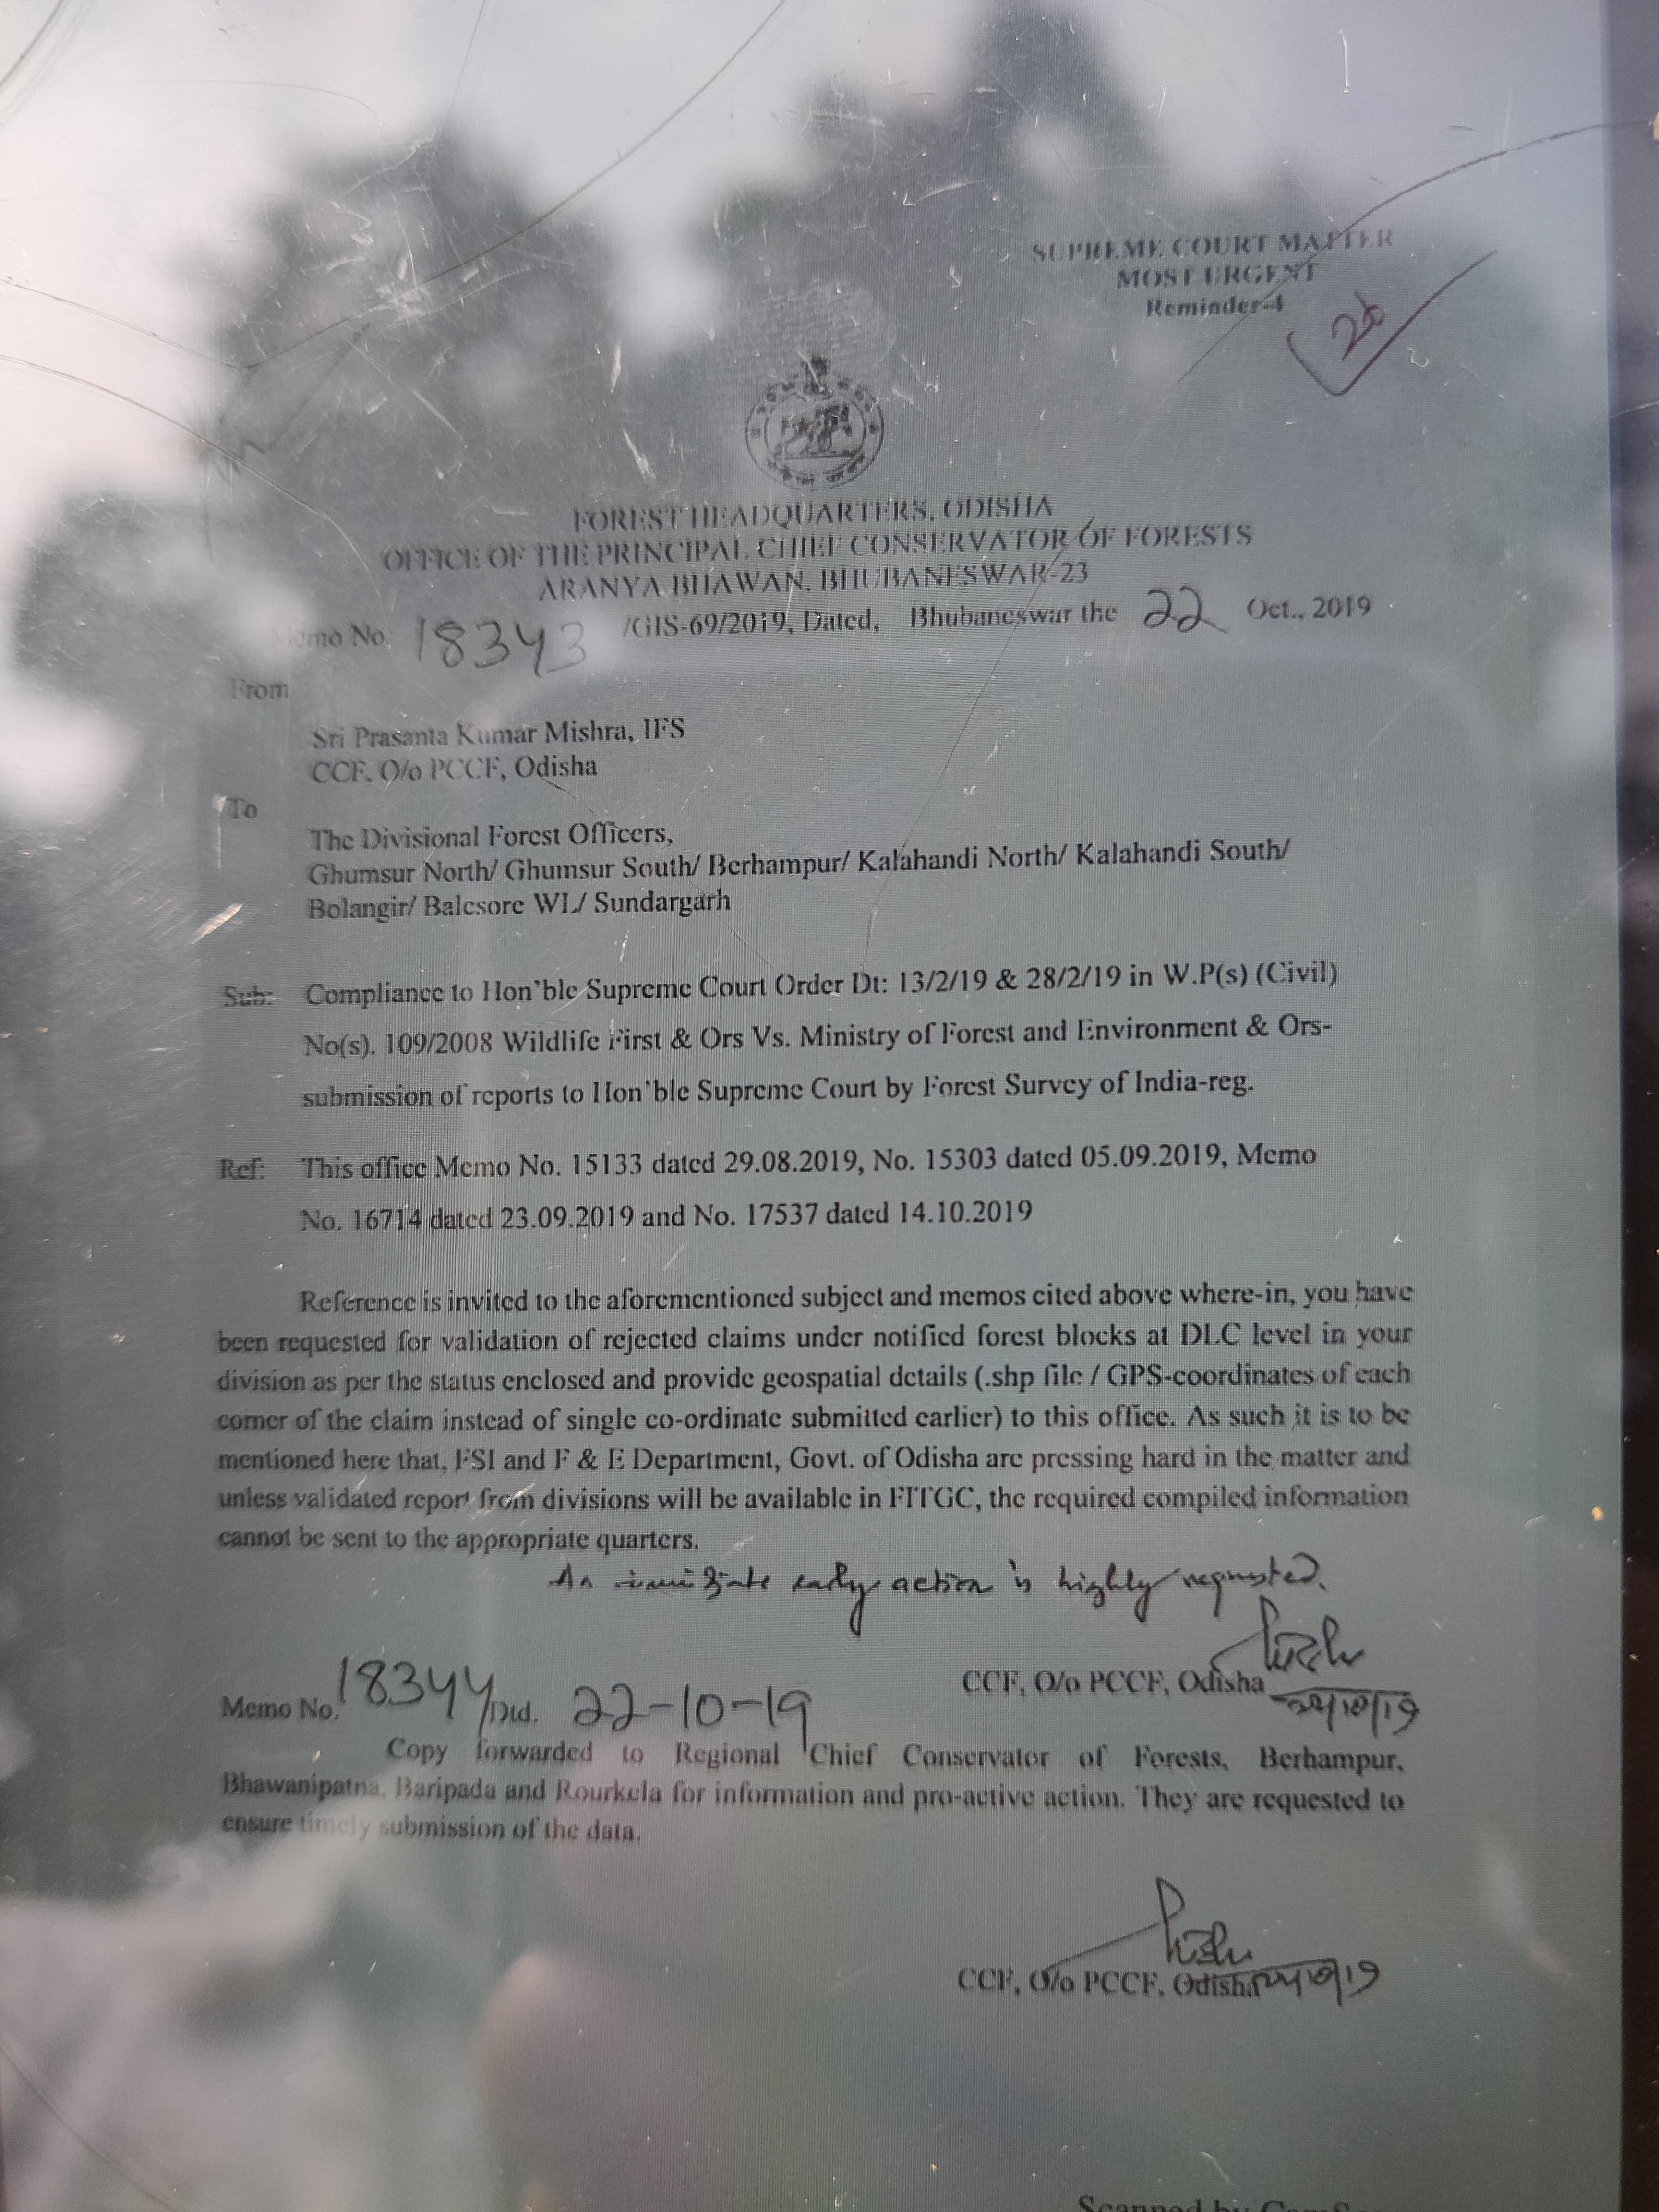 SUPREME COURT MATTER
MOST URGENT
Reminder-4
26
FOREST HEADQUARTERS, ODISHA
OFFICE OF THE PRINCIPAL CHIEF CONSERVATOR OF FORESTS
ARANYA BHAWAN, BHUBANESWAR-23
Memo No. 18343 /GIS-69/2019, Dated, Bhubaneswar the 22 Oct., 2019
From
Sri Prasanta Kumar Mishra, IFS
CCF, O/o PCCF, Odisha
To
The Divisional Forest Officers,
Ghumsur North/ Ghumsur South/ Berhampur/ Kalahandi North/ Kalahandi South/
Bolangir/ Balesore WL/ Sundargarh
Sub: Compliance to Hon'ble Supreme Court Order Dt: 13/2/19 & 28/2/19 in W.P(s) (Civil)
No(s). 109/2008 Wildlife First & Ors Vs. Ministry of Forest and Environment & Ors-
submission of reports to Hon'ble Supreme Court by Forest Survey of India-reg.
Ref: This office Memo No. 15133 dated 29.08.2019, No. 15303 dated 05.09.2019, Memo
No. 16714 dated 23.09.2019 and No. 17537 dated 14.10.2019
Reference is invited to the aforementioned subject and memos cited above where-in, you have
been requested for validation of rejected claims under notified forest blocks at DLC level in your
division as per the status enclosed and provide geospatial details (.shp file / GPS-coordinates of each
corner of the claim instead of single co-ordinate submitted earlier) to this office. As such it is to be
mentioned here that, FSI and F & E Department, Govt. of Odisha are pressing hard in the matter and
unless validated report from divisions will be available in FITGC, the required compiled information
cannot be sent to the appropriate quarters.
An immidiate early action is highly requested.
CCF, O/o PCCF, Odisha
Memo No. 18344/Dtd. 22-10-19
Copy forwarded to Regional Chief Conservator of Forests, Berhampur,
Bhawanipatna, Baripada and Rourkela for information and pro-active action. They are requested to
ensure timely submission of the data.
CCF, O/o PCCF, Odisha
Scanned by